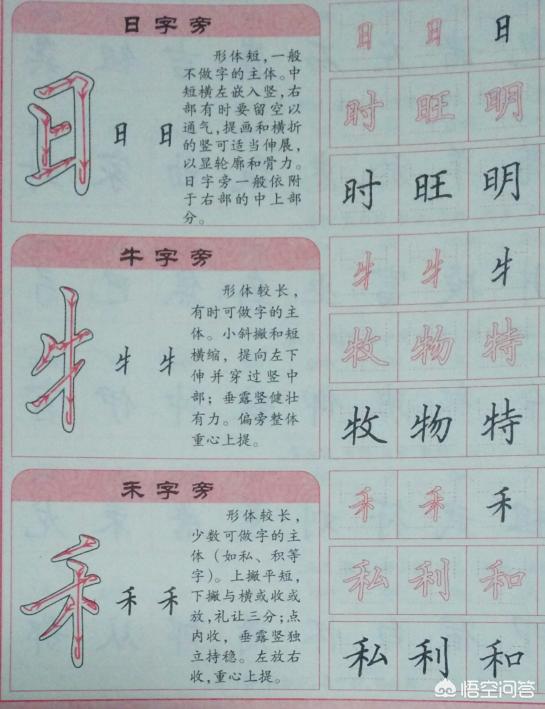 日字旁
日 日 日
形体短,一般
不做字的主体。中
短横左嵌入竖,右
部有时要留空以
通气,提画和横折
的竖可适当伸展,
以显轮廓和骨力。
日字旁一般依附
于右部的中上部
分。
日 日 日
时 旺 明
时 旺 明
牛字旁
牜 牜 牜
形体较长,
有时可做字的主
体。小斜撇和短
横缩,提向左下
伸并穿过竖中
部;垂露竖健壮
有力。偏旁整体
重心上提。
牜 牜 牜
牧 物 特
牧 物 特
禾字旁
禾 禾 禾
形体较长,
少数可做字的主
体(如私、积等
字)。上撇平短,
下撇与横或收或
放,礼让三分;点
内收,垂露竖独
立持稳。左放右
收,重心上提。
禾 禾 禾
私 利 和
私 利 和
悟空问答